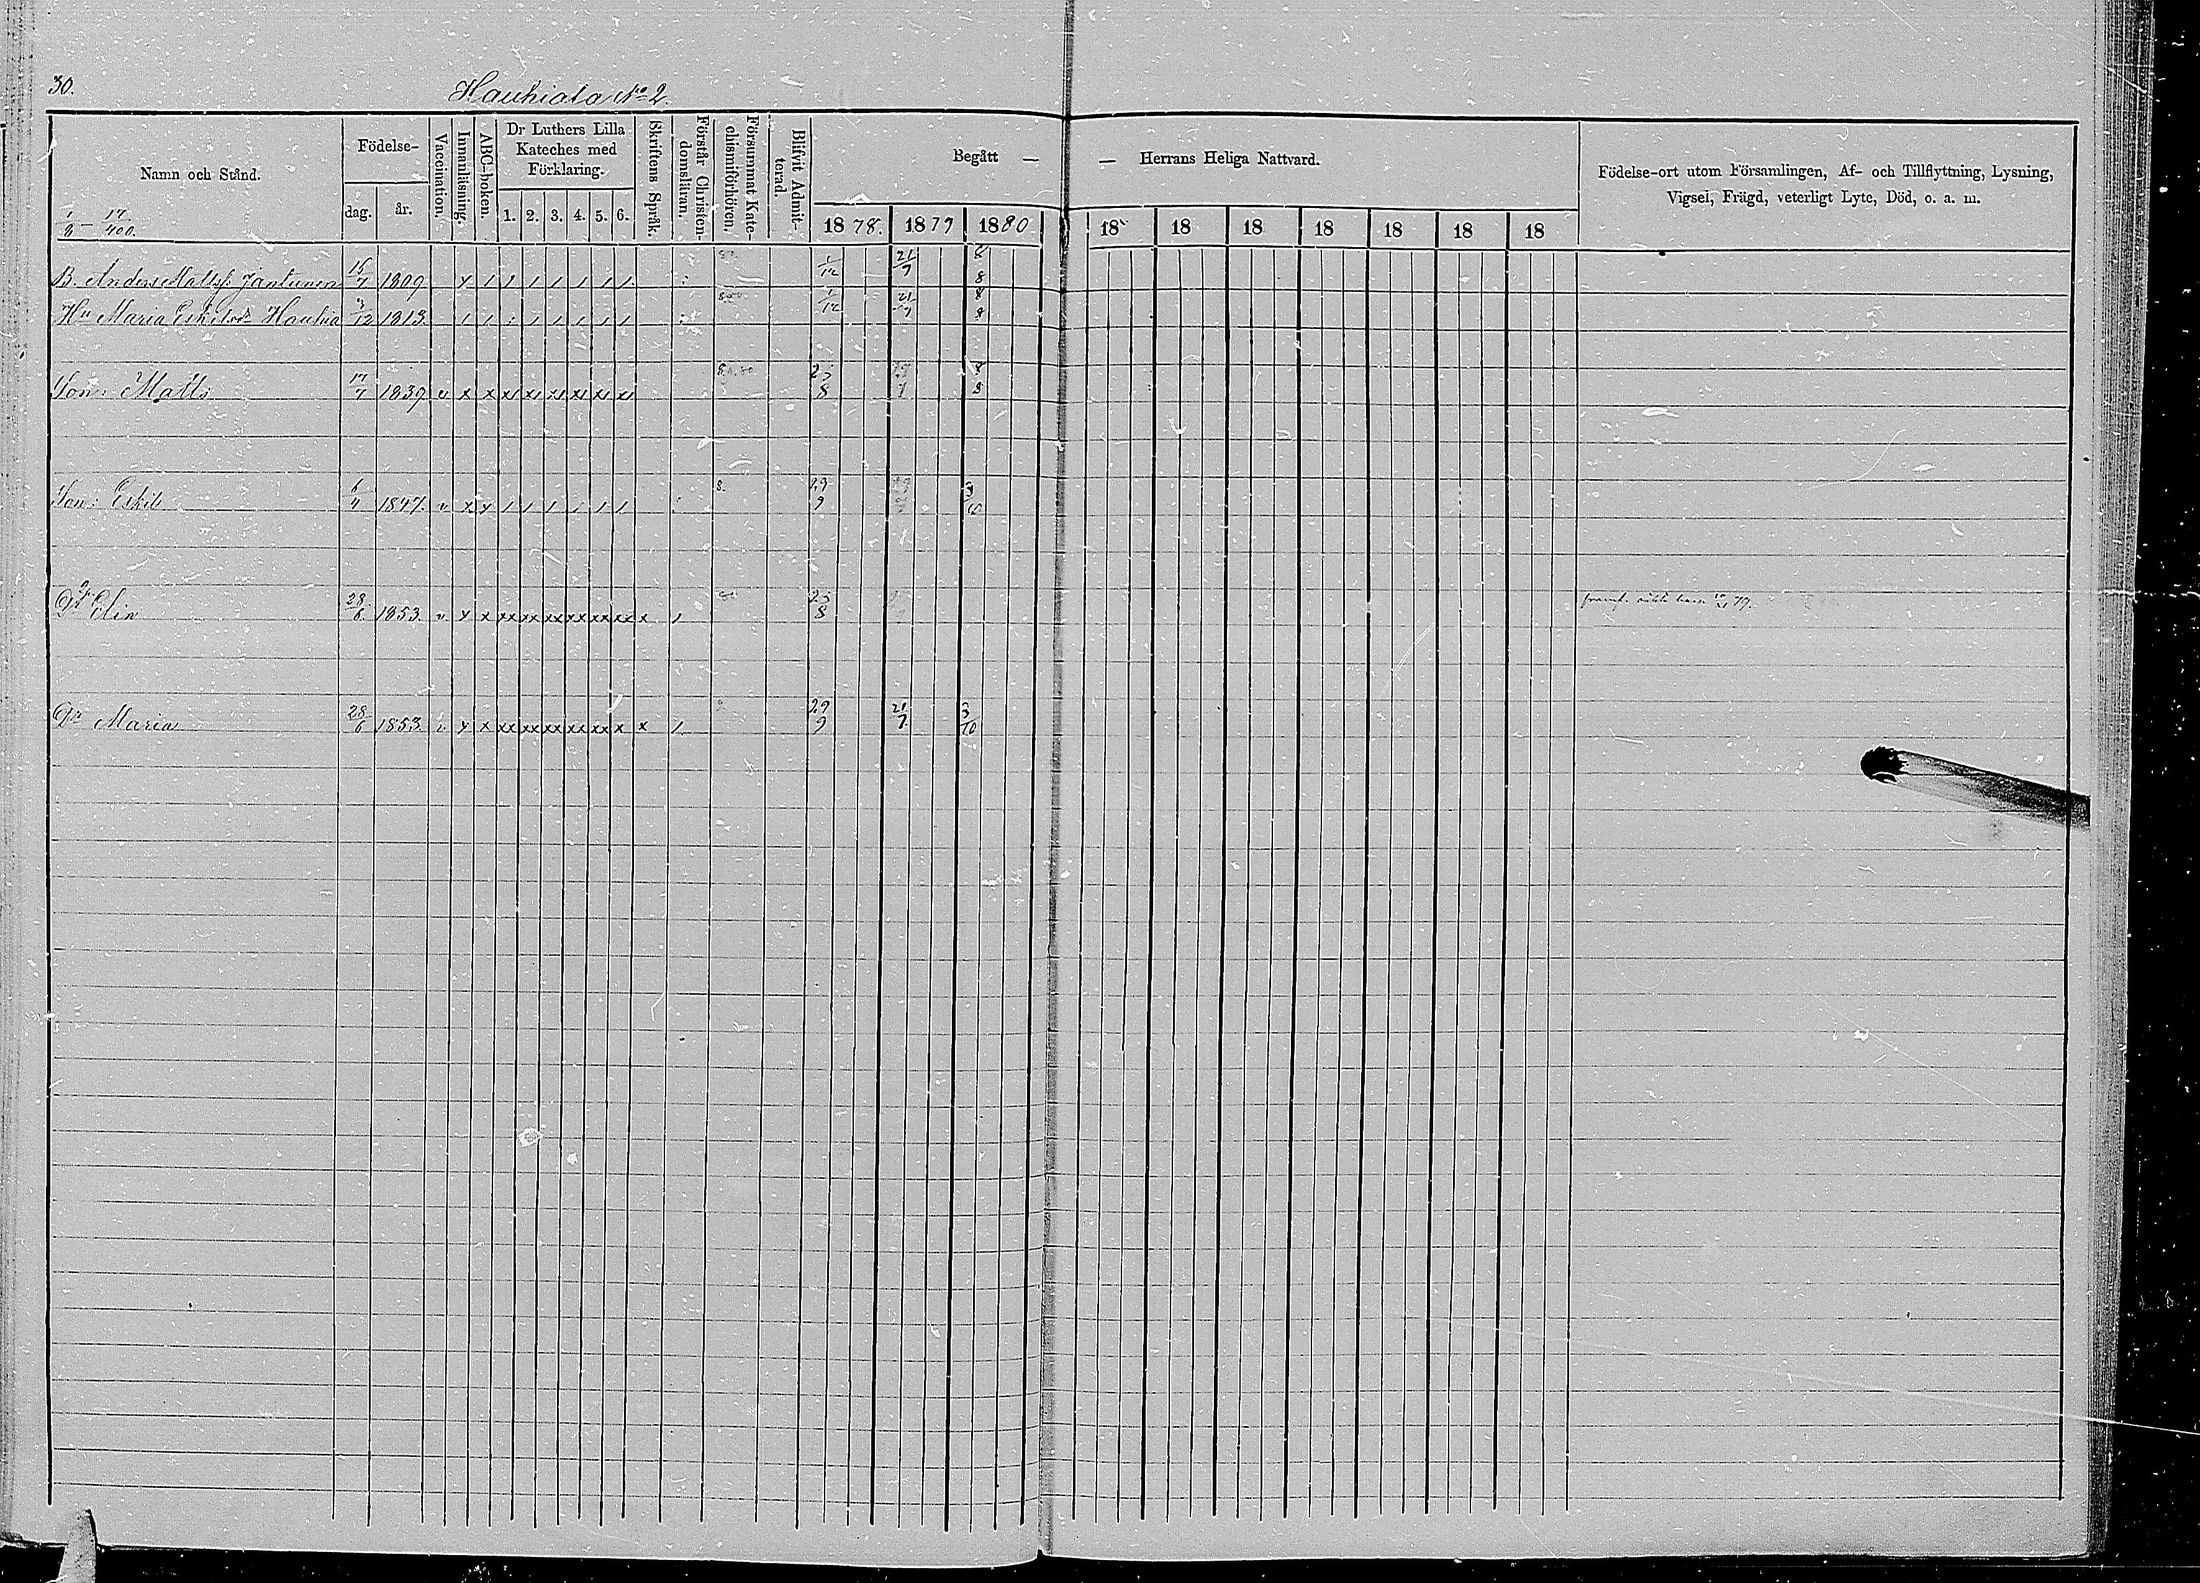 30.
Hauhiala No 2.
Namn och Stånd.
Födelse-
dag.
år.
Vaccination.
Innanläsning.
ABC-boken.
Dr Luthers Lilla
Kateches med
Förklaring.
1. 2. 3. 4. 5. 6.
Skriftens Språk.
Förstår Christen-
domsläran.
Försummat Kate-
chismiförhören.
Blifvit Admit-
terad.
Begått — — Herrans Heliga Nattvard.
1878. 1879 1880 18 18 18 18 18 18 18
Födelse-ort utom Församlingen, Af- och Tillflyttning, Lysning,
Vigsel, Frägd, veterligt Lyte, Död, o. a. m.
B. Anders Mattss Jantunen 15/7 1809 x 1 1 1 1 1 1 1 1/12 21/7 8/8
Hu Maria Eskilsdr 3/12 1813 1 1 1 1 1 1 1 1/12 21/7 8/8
Son: Matts 17/7 1839 v x x x1 x1 x1 x1 x1 x1 25/8 8/8
Son: Eskil 6/4 1847. v x x 1 1 1 1 1 1 8. 29/9 3/10
Dr Elin 28/6 1853. v x x xx xx xx xx xx xx x 1 25/8
79.
Dr Maria 28/6 1853. v x x xx xx xx xx xx x x 1 29/9 21/7 3/10